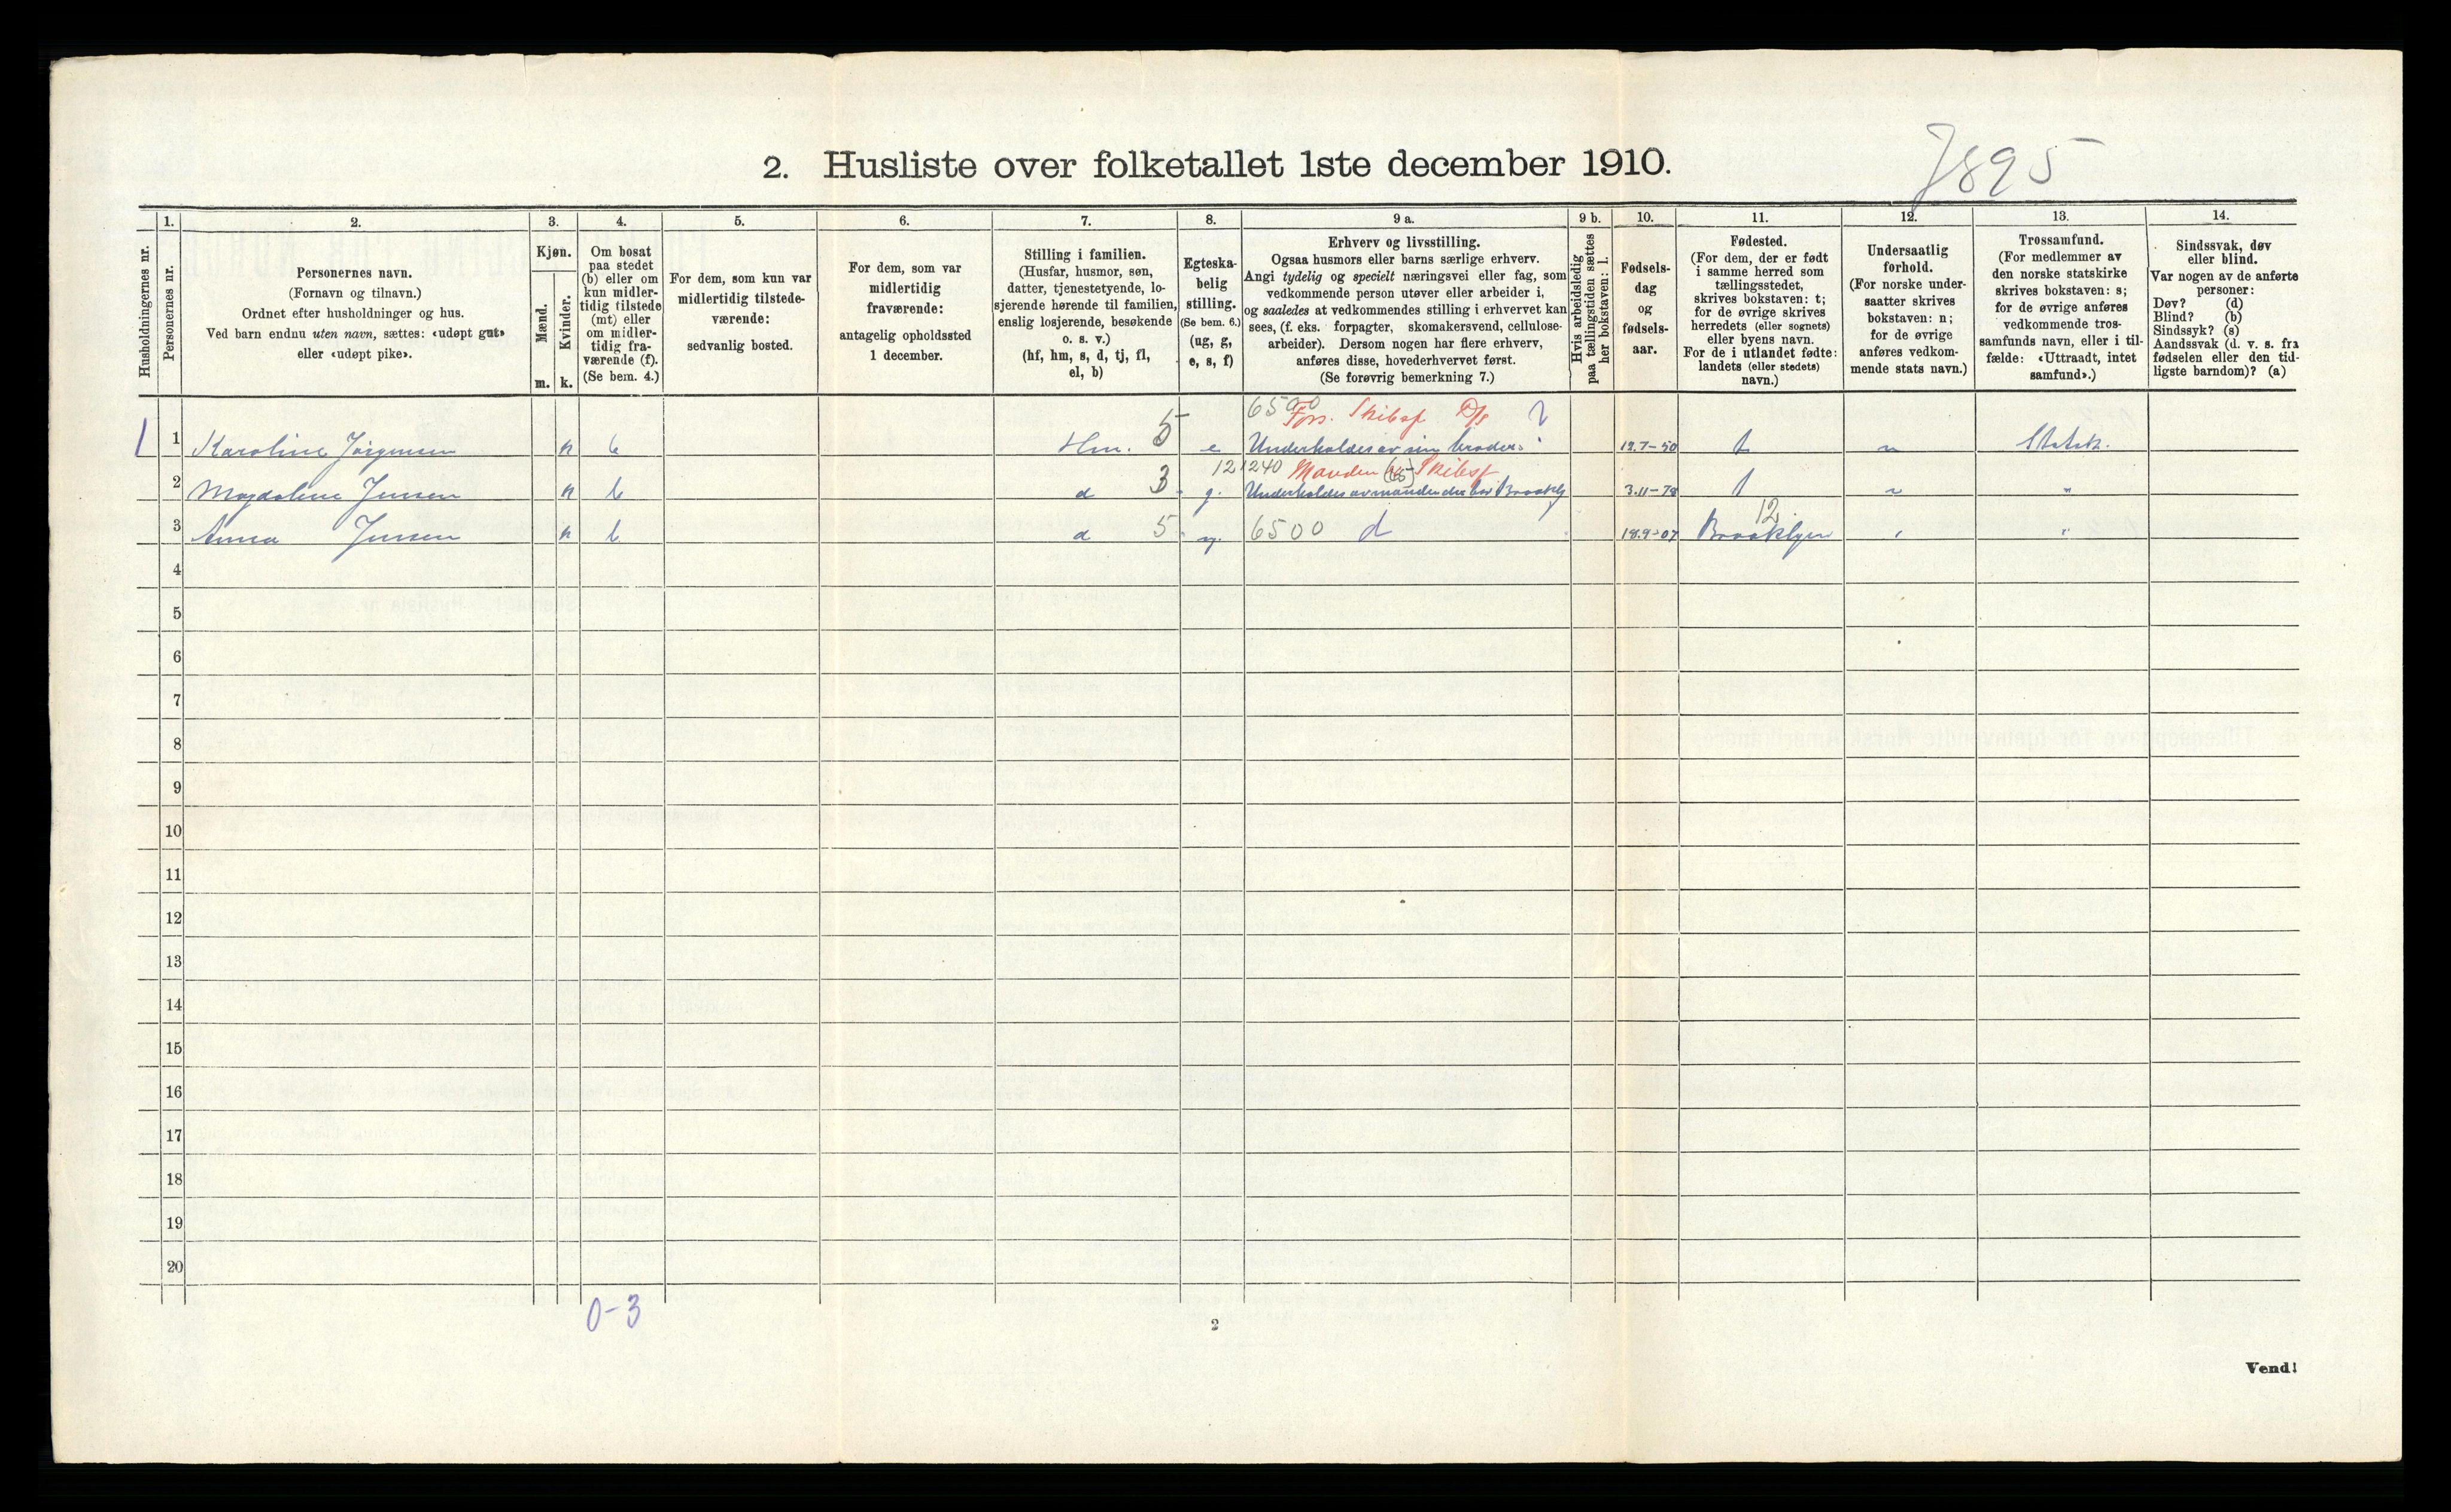 7895
2. Husliste over folketallet 1ste december 1910.
Husholdningernes nr.
1.
Personernes nr.
2.
Personernes navn.
(Fornavn og tilnavn.)
Ordnet efter husholdninger og hus.
Ved barn endnu uten navn, sættes: «udøpt gut»
eller «udøpt pike».
3.
Kjøn.
Mænd.
Kvinder.
m. k.
4.
Om bosat
paa stedet
(b) eller om
kun midler-
tidig tilstede
(mt) eller
om midler-
tidig fra-
værende (f).
(Se bem. 4.)
5.
For dem, som kun var
midlertidig tilstede-
værende:
sedvanlig bosted.
6.
For dem, som var
midlertidig
fraværende:
antagelig opholdssted
1 december.
7.
Stilling i familien.
(Husfar, husmor, søn,
datter, tjenestetyende, lo-
sjerende hørende til familien,
enslig losjerende, besøkende
o. s. v.)
(hf, hm, s, d, tj, fl,
el, b)
8.
Egteska-
belig
stilling.
(Se bem. 6.)
(ug, g,
e, s, f)
9 a.
Erhverv og livsstilling.
Ogsaa husmors eller barns særlige erhverv.
Angi tydelig og specielt næringsvei eller fag, som
vedkommende person utøver eller arbeider i,
og saaledes at vedkommendes stilling i erhvervet kan
sees, (f. eks. forpagter, skomakersvend, cellulose-
arbeider). Dersom nogen har flere erhverv,
anføres disse, hovederhvervet først.
(Se forøvrig bemerkning 7.)
9 b.
Hvis arbeidsledig
paa tællingstiden sættes
her bokstaven: l.
10.
Fødsels-
dag
og
fødsels-
aar.
11.
Fødested.
(For dem, der er født
i samme herred som
tællingsstedet,
skrives bokstaven: t;
for de øvrige skrives
herredets (eller sognets)
eller byens navn.
For de i utlandet fødte:
landets (eller stedets)
navn.)
12.
Undersaatlig
forhold.
(For norske under-
saatter skrives
bokstaven: n;
for de øvrige
anføres vedkom-
mende stats navn.)
13.
Trossamfund.
(For medlemmer av
den norske statskirke
skrives bokstaven: s;
for de øvrige anføres
vedkommende tros-
samfunds navn, eller i til-
fælde: «Uttraadt, intet
samfund».)
14.
Sindssvak, døv
eller blind.
Var nogen av de anførte
personer:
Døv? (d)
Blind? (b)
Sindssyk? (s)
Aandssvak (d. v. s. fra
fødselen eller den tid-
ligste barndom)? (a)
6500 Fors. Skibsf D/s
1 1 Karoline Jørgensen k b Hm. 5 e Underholdes av sin broder. 12.7-50 t n Statsk.
12 1240 Manden Skibsf
2 Magdalene Jensen k b d 3 g. Underholdes av manden der bor Brookly 3.11-78 t n "
12
3 Anna Jensen k b d 5 ug. 6500 d 18.9-07 Brooklyn " "
4
5
6
7
8
9
10
11
12
13
14
15
16
17
18
19
20
0-3
2
Vend!